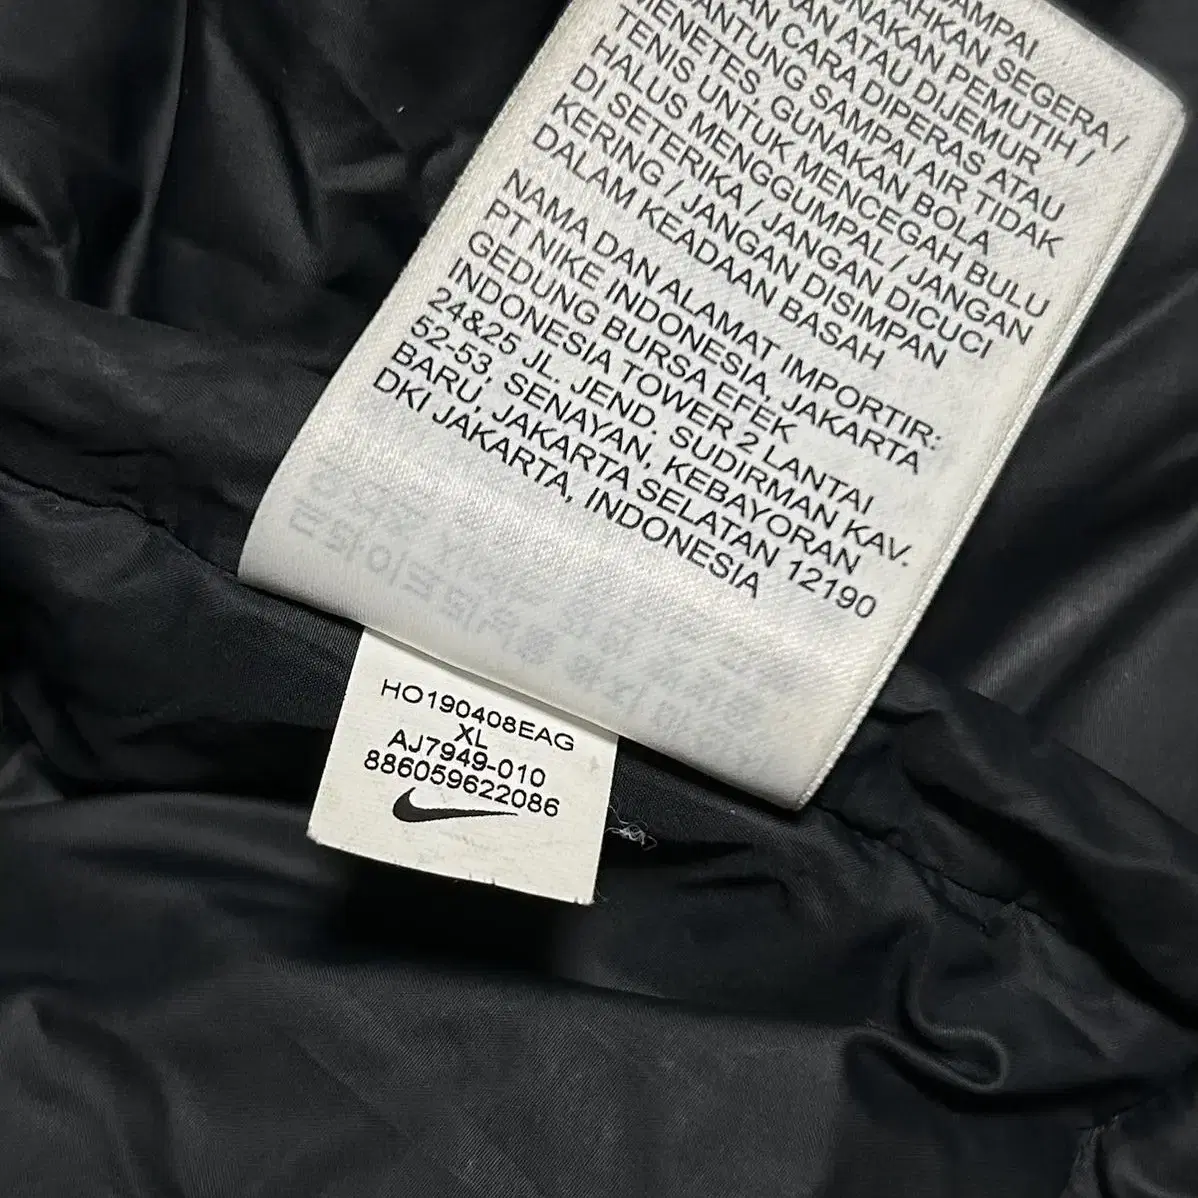 SAMPAI
AHKAN SEGERA /
NAKAN PEMUTIH /
KAN ATAU DIJEMUR
AN CARA DIPERAS ATAU
ANTUNG SAMPAI AIR TIDAK
MENETES, GUNAKAN BOLA
TENIS UNTUK MENCEGAH BULU
HALUS MENGGUMPAL / JANGAN
DI SETERIKA / JANGAN DICUCI
KERING / JANGAN DISIMPAN
DALAM KEADAAN BASAH
NAMA DAN ALAMAT IMPORTIR:
PT NIKE INDONESIA, JAKARTA
GEDUNG BURSA EFEK
INDONESIA TOWER 2 LANTAI
24&25 JL. JEND. SUDIRMAN KAV.
52-53, SENAYAN, KEBAYORAN
BARU, JAKARTA SELATAN 12190
DKI JAKARTA, INDONESIA
HO190408EAG
XL
AJ7949-010
886059622086